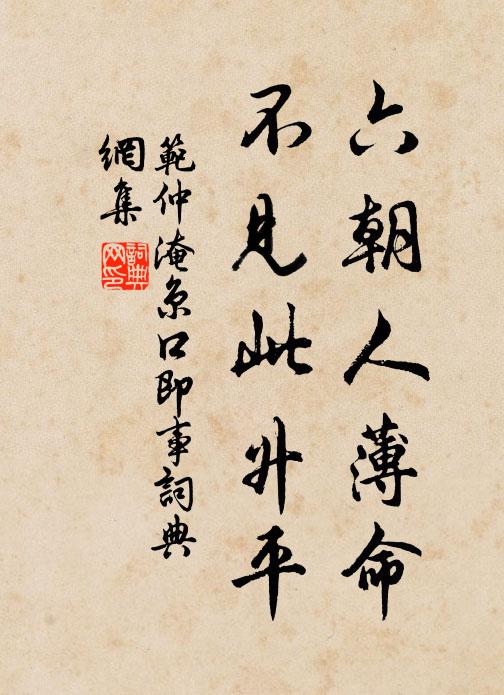 六朝人薄命
不見此升平
範仲淹京口即事詞典
網集
詞典
网印